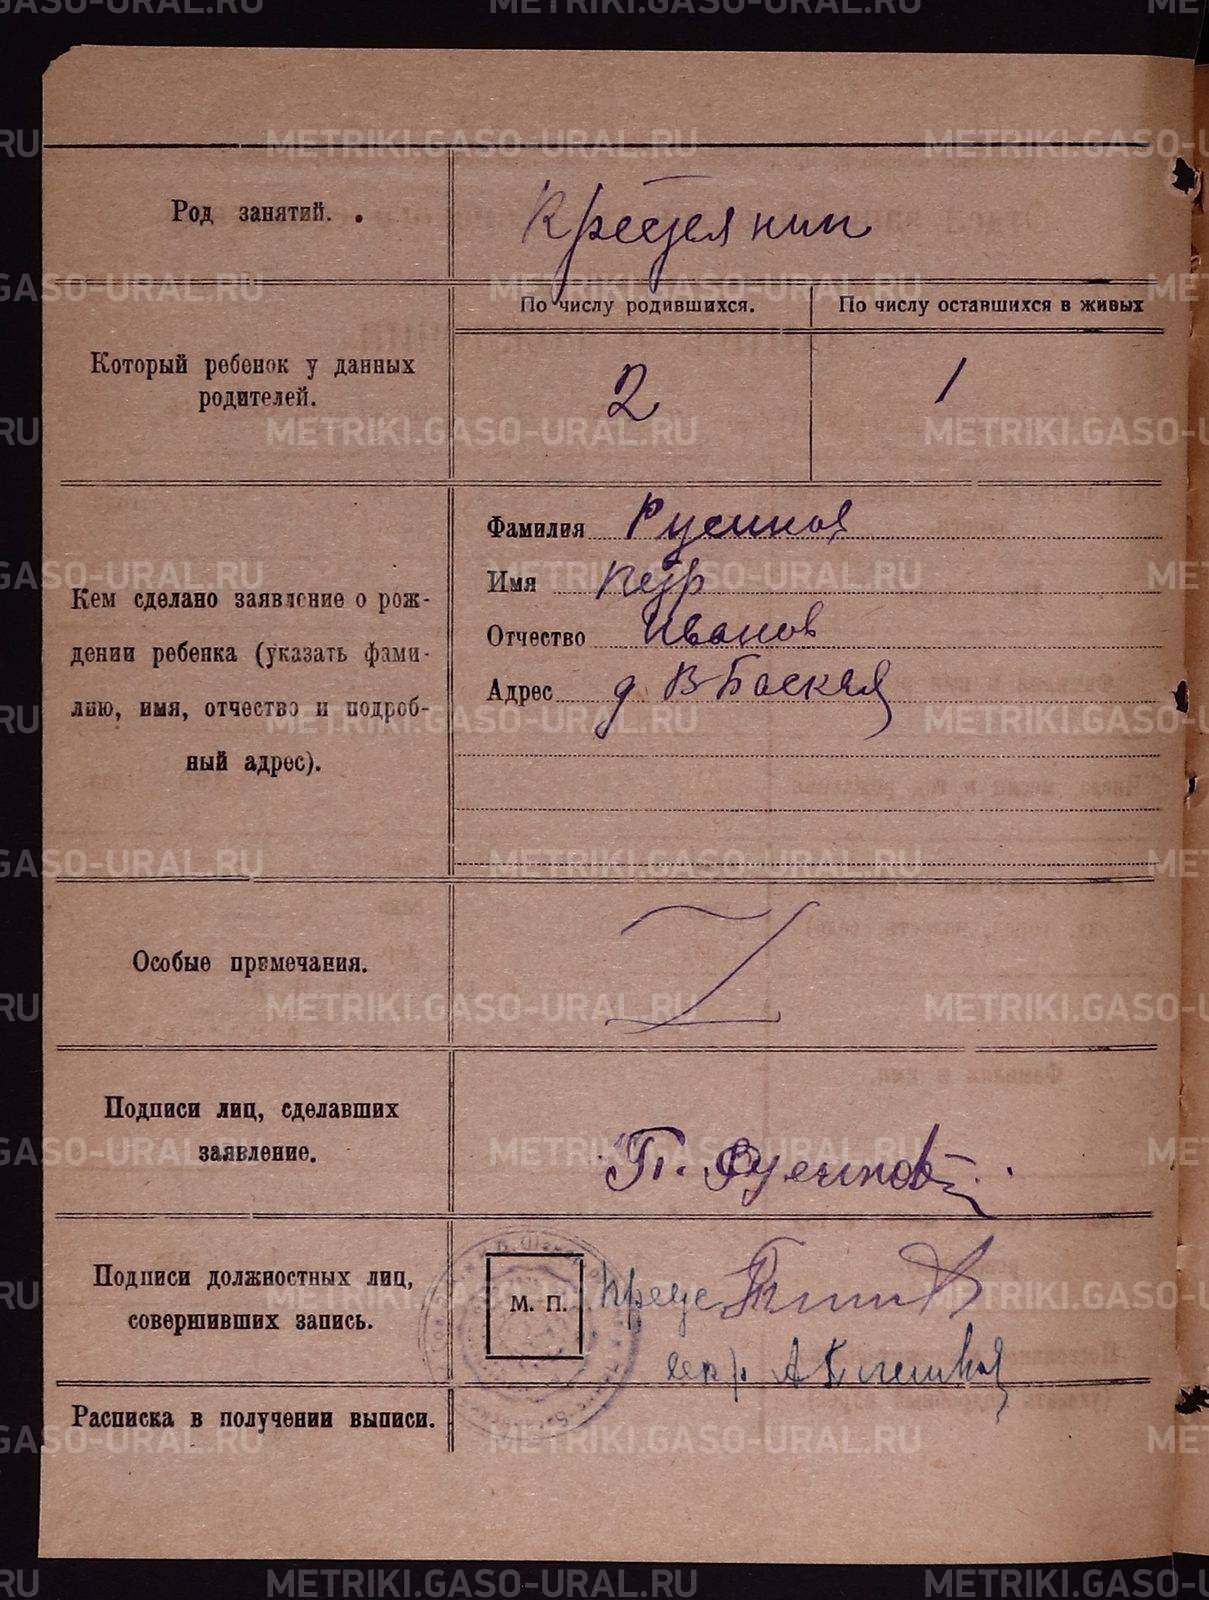 Род занятий.
Крестьянин
Который ребенок у данных
родителей.
По числу родившихся.
По числу оставшихся в живых
2
1
Кем сделано заявление о рож-
дении ребенка (указать фами-
лию, имя, отчество и подроб-
ный адрес).
Фамилия Русинов
Имя Петр
Отчество Иванов
Адрес д В-Баская
Особые примечания.
Z
Подписи лиц, сделавших
заявление.
П. Русинов
Подписи должностных лиц,
совершивших запись.
М. П.
секр А
Расписка в получении выписи.
METRIKI.GASO-URAL.RU